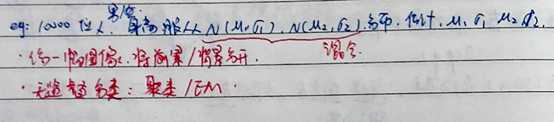 eg: 10000 位人, 男/女 身高服从 N(μ₁,σ₁), N(μ₂,σ₂) 分布. 估计. μ₁ σ₁ μ₂ σ₂.
混合.
· 给一幅图像, 将前景/背景分开.
· 无监督分类: 聚类/EM.